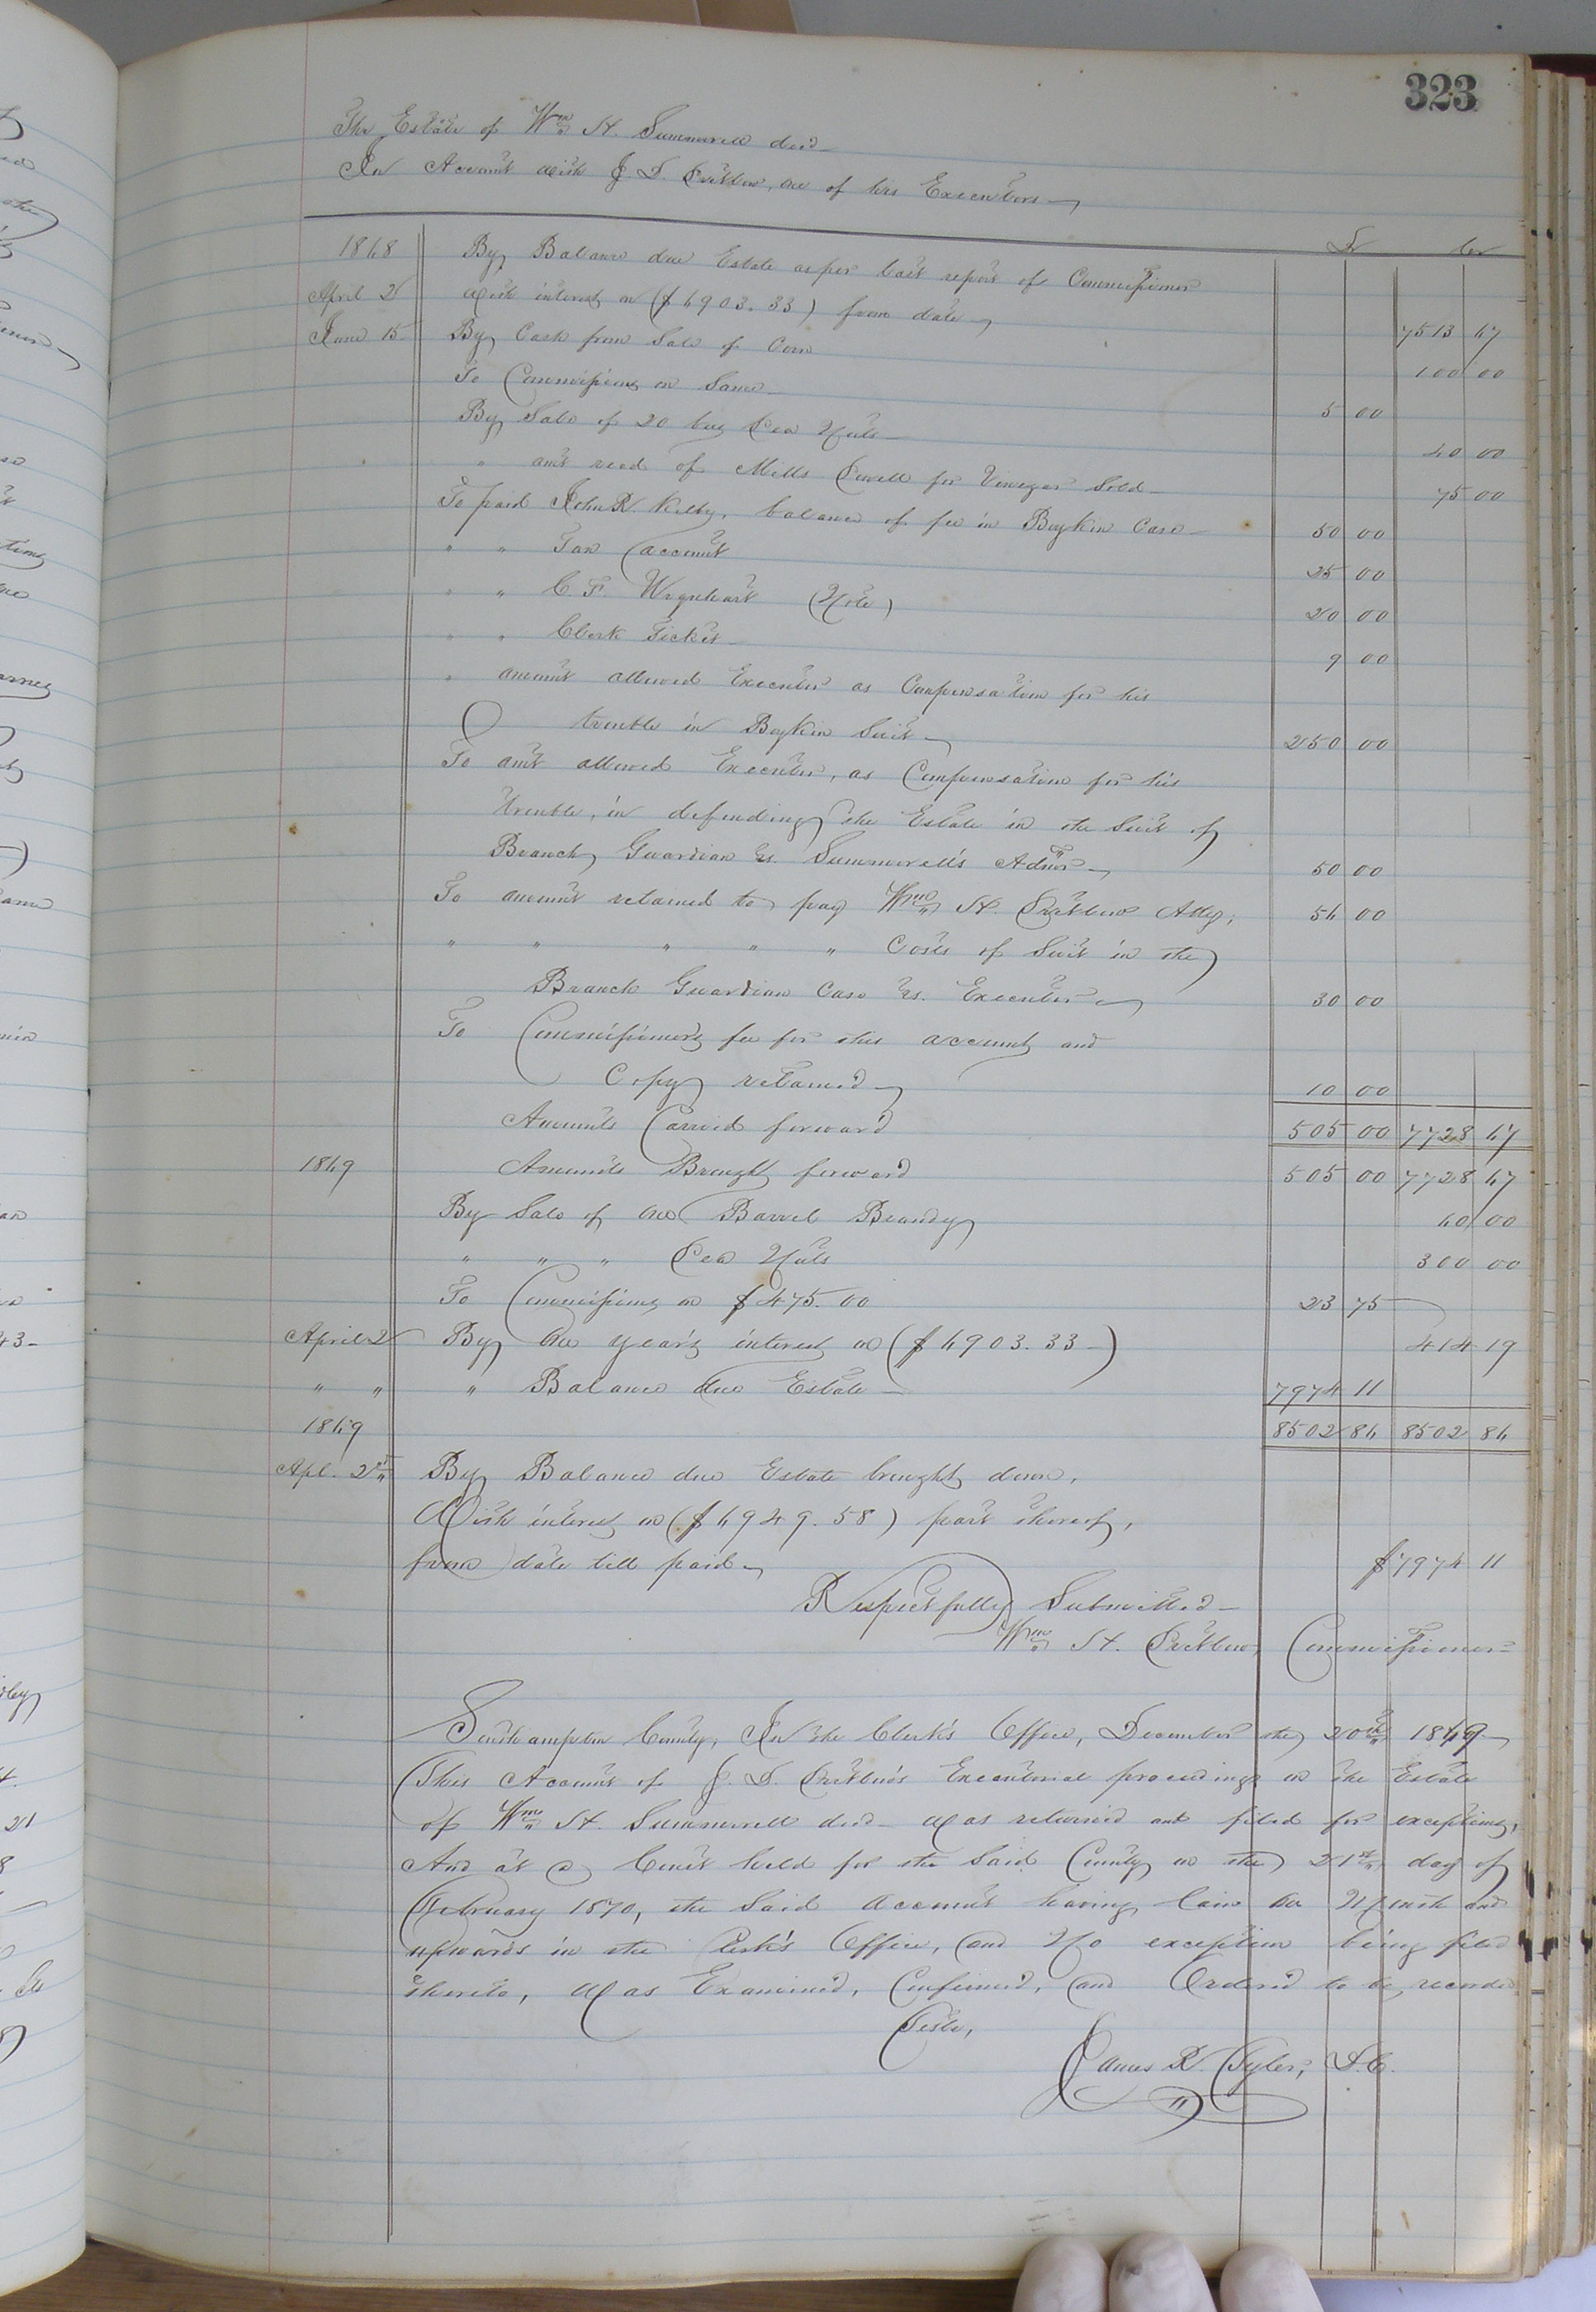 323
The Estate of Wm H. Summerell decd
In Account with J. D. Pretlow, one of his Executors
Dr Cr
1868 By Balance due Estate as per last report of Commissioner
April 2 with interest on ($6903.33) from date 7513 67
June 15 By Cash from Sale of Corn 100 00
To Commissions on Same 5 00
By Sale of 20 bus Pea Nuts 40 00
" amt recd of Mills Powell for Vinegar Sold 75 00
To paid John R. Kilby, balance of fee in Boykin Case 50 00
" " Tax account 25 00
" " C. F. Urquhart (Note) 20 00
" " Clerk Ticket 9 00
" amount allowed Executor as Compensation for his
trouble in Boykin Suit 250 00
To amt allowed Executor, as Compensation for his
trouble, in defending the Estate in the Suit of
Branch, Guardian vs. Summerell's Admor 50 00
To amount retained to pay Wm H. Pretlow Atty, 56 00
" " " " " Costs of Suit in the
Branch Guardian Case vs. Executor 30 00
To Commissioners fee for this account and
Copy retained 10 00
Amounts Carried forward 505 00 7728 67
1869 Amounts Brought forward 505 00 7728 67
By Sale of One Barrel Brandy 60 00
" " " Pea Nuts 300 00
To Commissions on $475.00 23 75
April 2 By One years interest on ($6903.33) 414 19
" " " Balance due Estate 7974 11
1869 8502 86 8502 86
Apl. 2nd By Balance due Estate brought down,
With interest on ($6949.58) part thereof,
from date till paid $7974 11
Respectfully Submitted
Wm H. Pretlow, Commissioner
Southampton County, In the Clerk's Office, December the 20th 1869
This Account of J. D. Pretlow's Executorial proceedings on the Estate
of Wm H. Summerell decd was returned and filed for exceptions,
And at a Court held for the Said County on the 21st day of
February 1870, the Said account having lain one Month and
upwards in the Clerk's Office, and No exception being filed
thereto, was Examined, Confirmed, and Ordered to be recorded
Teste,
James R. Tyler, D.C.